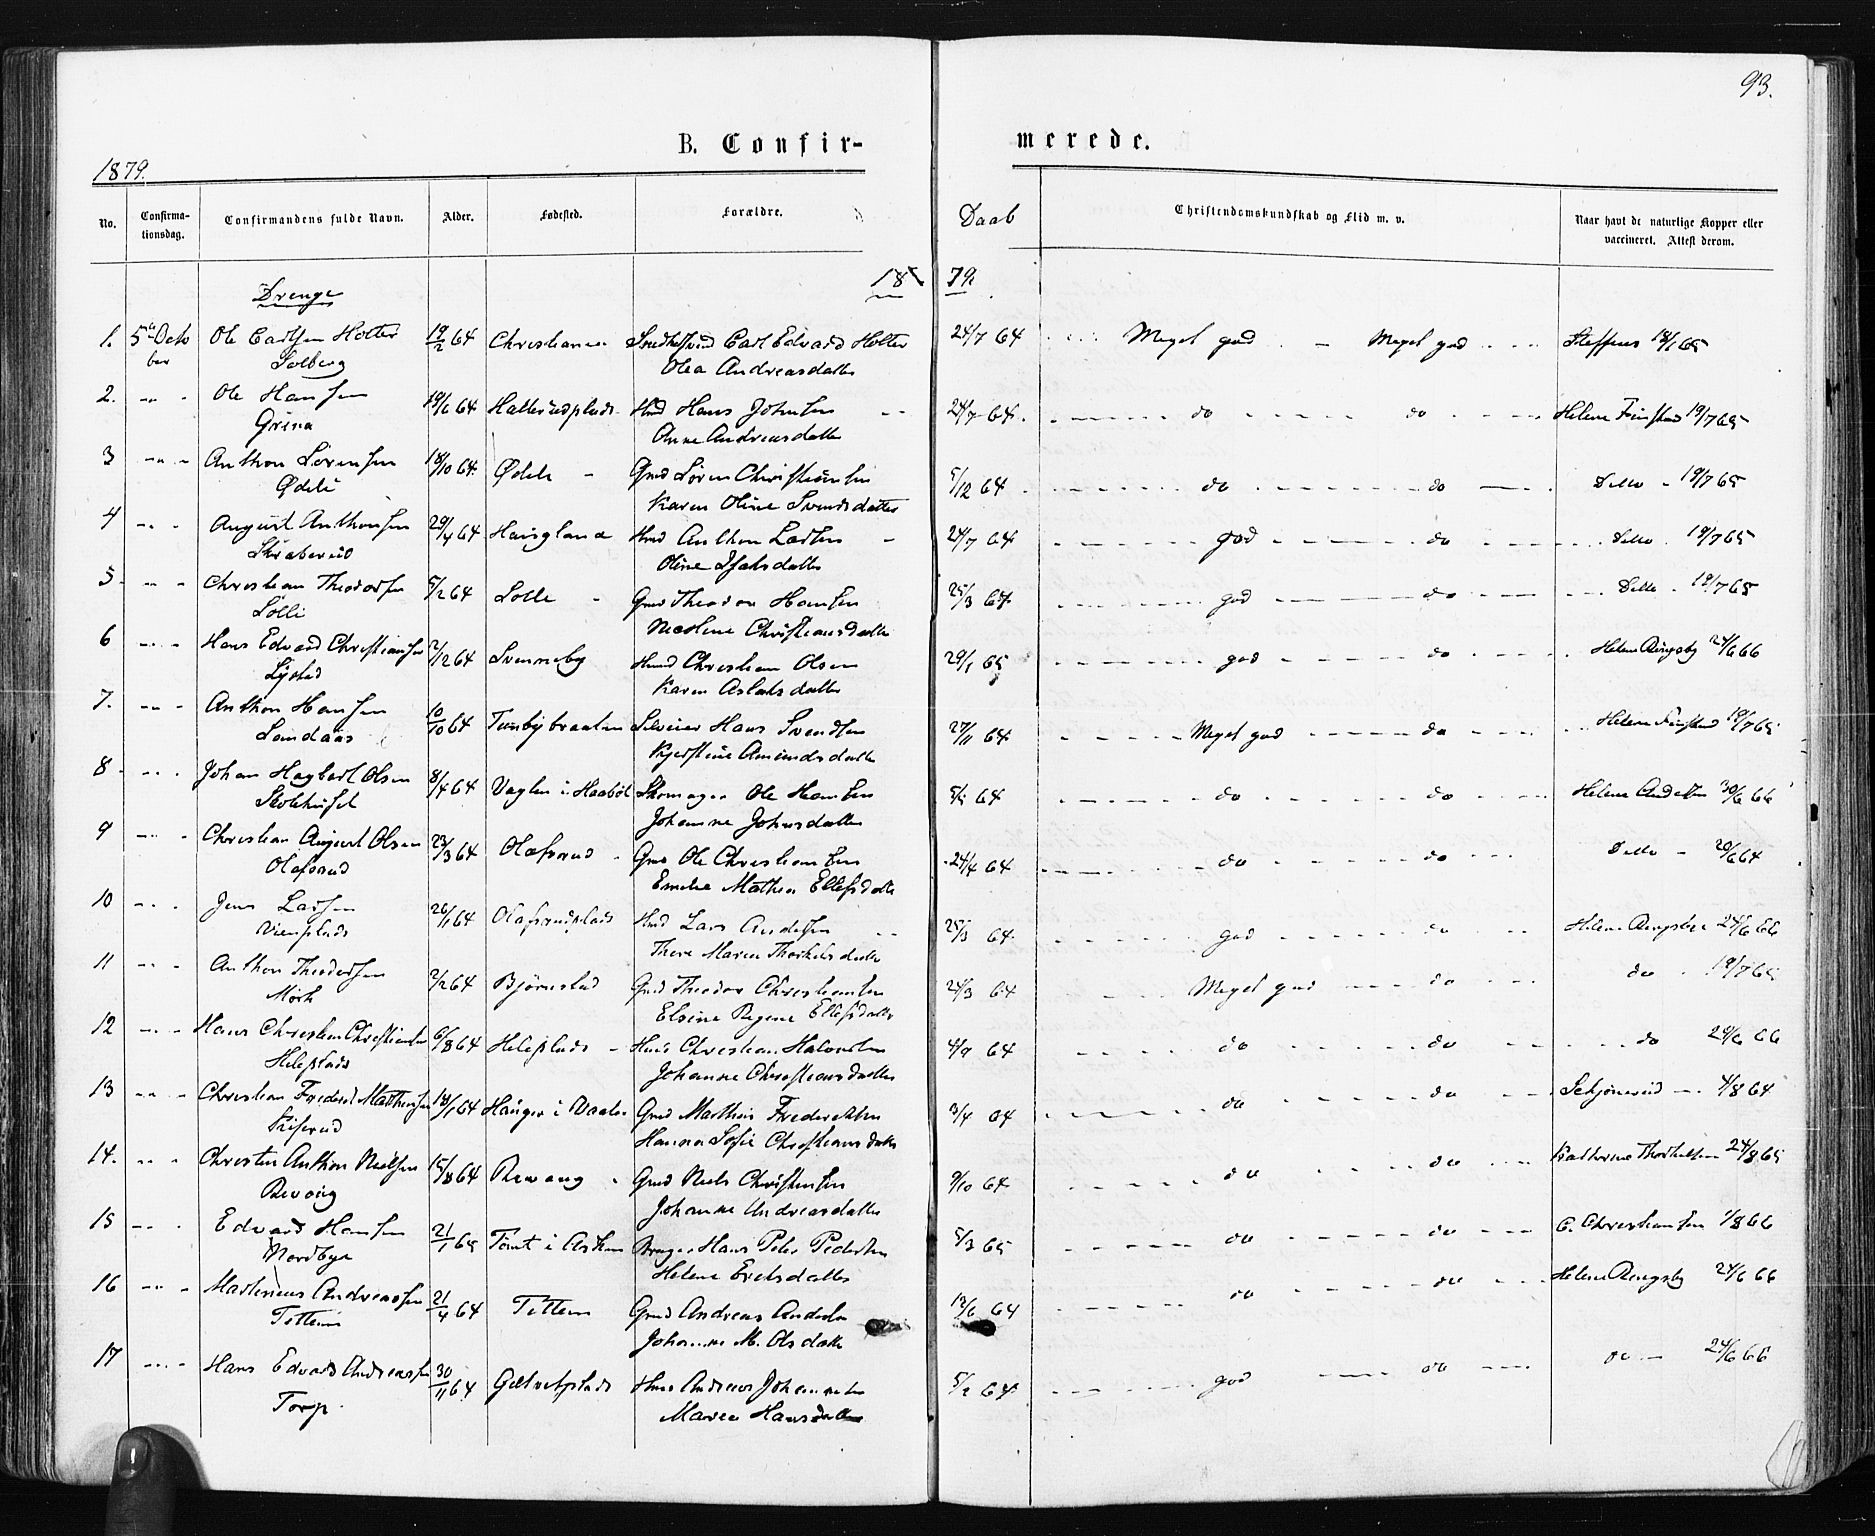 93.
B. Confir- merede.
1879.
No. Confirma-tionsdag. Confirmandens fulde Navn. Alder. Fødested. Forældre. Daab Christendomskundskab og Flid m. v. Naar havt de naturlige Kopper eller vaccineret. Attest derom.
Drenge 18 79
1. 5te Octo Ole Carlsen Holter 19/2 64 Christiania Carl Edvard Holter 24/7 64 Meget god - Meget god Steffens 18/1 65
ber Solberg Olea Andreasdatter
2. " " Ole Hansen 19/6 64 Hallerudplads Hmd Hans Johnsen 24/7 64. do do Helene Finstad 19/7 65
Grina Anne Andreasdatter
3 " " Anthon Sørensen 18/10 64. Ødeli Gmd Søren Christiansen 5/12 64 do do Ditto 19/7 65
Ødeli Karen Oline Svendsdatter
4 " " August Anthonsen 29/4 64 Haugland Hmd Anthon Larsen 24/7 64 god do Ditto. 19/7 65
Skraberud Oline Isaksdatter
5. " " Christian Theodorsen 5/2 64 Lolli Gmd Theodor Hansen 25/3 64. god do Ditto. 19/7 65
Lolli Nicoline Christiansdatter
6 " " Hans Edvard Christiansen 2/12 64 Svenneby Hmd Christian Olsen 29/1 65 god do Helene Ringsby 24/6 66
Karen Aslaksdatter
7. " " Anthon Hansen 10/10 64 Tunbybraaten Hans Svendsen 27/11 64. Meget god do Helene Finstad 19/7 65
Sandaas Kjerstine Amundsdatter
8 " " Johan Hagbart Olsen 8/4 64 Vaglen i Haabøl Skomager Ole Hansen 5/5 64 do do Helene Andersen 30/6 66
Skolehuset Johanne Johnsdatter
9 " " Christian August Olsen 23/3 64 Olafsrud Gmd Ole Christiansen 24/4 64 do do Ditto - 20/6 64
Olafsrud Emelie Mathea Ellefsdatter
10 " " Jens Larsen 26/1 64 Olafsrudplads Hmd Lars Andersen 25/3 64. god do Helene Ringsbye 24/6 66
Vienplads Maren Thorkelsdatter
11 " " Anthon Theodorsen 2/2 64 Bjørnstad Gmd Theodor Christiansen 24/3 64 Meget god do do 19/7 65
Mørk Elsine Regine Ellefsdatter
12 " " Hans Christian Christiansen 6/8 64 Heleplads Hmd Christian Halvorsen 4/9 64 do do do 24/6 66
Heleplads Johanne Christiansdatter
13 " " Christian Frederik Mathisen 18/1 64 Hauger i Vaaler Gmd Mathias Frederiksen 3/4 64 do do Schjønerud 4/8 64
Kiserud Hanna Sofie Christiansdatter
14. " " Christen Anthon Nielsen 15/8 64 Revoug Gmd Niels Christensen 9/10 64 do do Kathrine Thorkelsen 24/8 65
Revoug Johanne Andreasdatter
15 " " Edvard Hansen 21/1 65 Tomt i Askim Bruger Hans Peter Pedersen 5/3 65 do do C. Christiansen 1/8 66
Nordbye Helene Eriksdatter
16 " " Martinius Andreassen 21/4 64 Titteru Gmd Andreas Andersen 12/6 64 do do Helene Ringsby 24/6 66
Johanne M. Olsdatter
17 " " Hans Edvard Andreassen 30/11 64 Gultvetplads Hmd Andreas Johannesen 5/2 64. god do do - 24/6 66
Torp. Maren Hansdatter